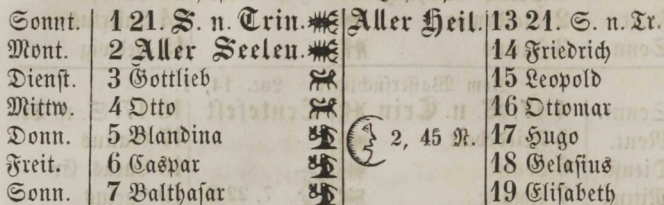 Sonnt. 1 21. S. n. Trin. Aller Heil. 13 21. S. n. Tr.
Mont. 2 Aller Seelen. 14 Friedrich
Dienſt. 3 Gottlieb 15 Leopold
Mittw. 4 Otto 16 Ottomar
Donn. 5 Blandina 2, 45 N. 17 Hugo
Freit. 6 Caspar 18 Gelaſius
Sonn. 7 Balthaſar 19 Eliſabeth